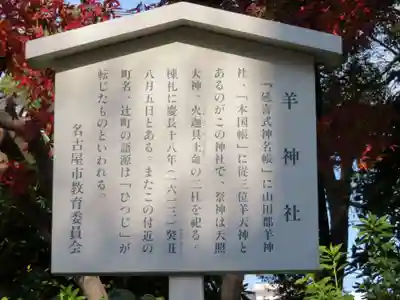 羊神社
『延喜式神名帳』に山田郡羊神
社、『本国帳』に従三位羊天神と
あるのがこの神社で、祭神は天照
大神、火迦具土命の二柱を祀る。
棟札に慶長十八年（一六一三）癸丑
八月五日とある。またこの付近の
町名、辻町の語源は「ひつじ」が
転じたものといわれる。
名古屋市教育委員会